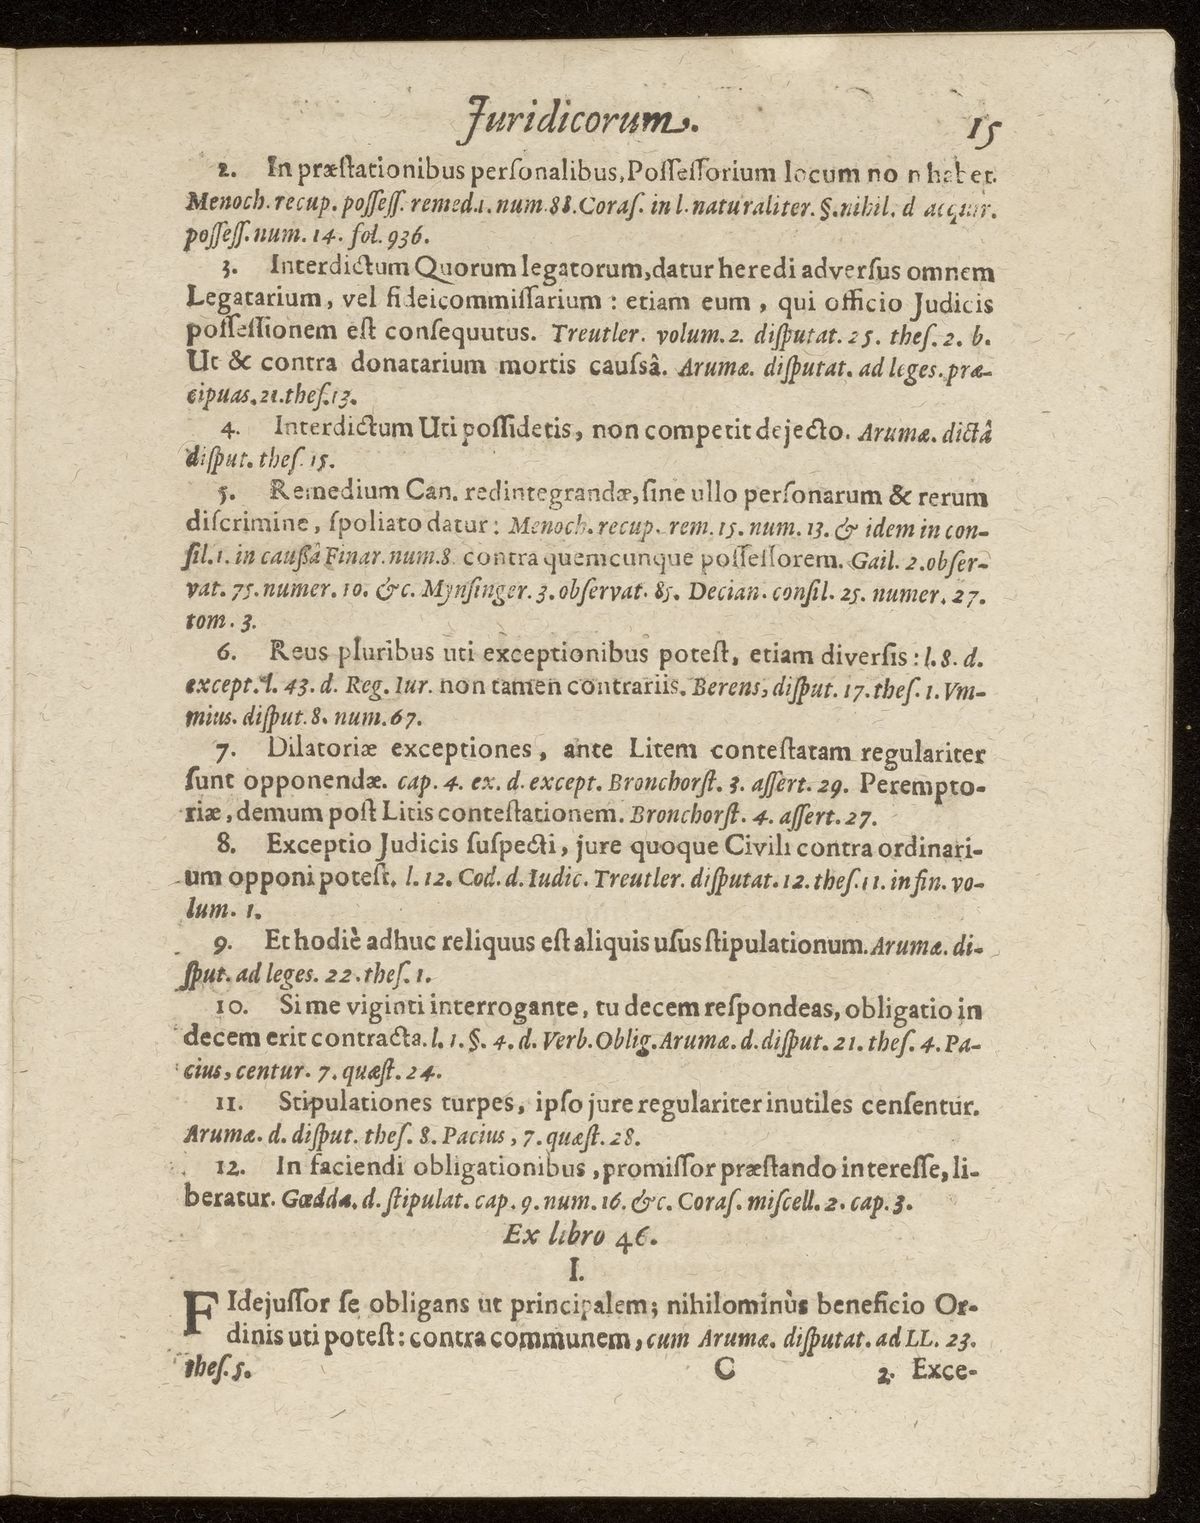 Juridicorum. 15
2. In præſtationibus perſonalibus, Poſſeſſorium locum no n habet.
Menoch. recup. poſſeſſ. remed.1. num.88. Coraſ. in l. naturaliter. §. nihil. d acquir.
poſſeſſ. num. 14. fol. 936.
3. Interdictum Quorum legatorum, datur heredi adverſus omnem
Legatarium, vel fideicommiſſarium : etiam eum, qui officio Judicis
poſſeſſionem eſt conſequutus. Treutler. volum. 2. diſputat. 25. theſ. 2. b.
Ut & contra donatarium mortis cauſsâ. Arumæ. diſputat. ad leges. præ-
cipuas. 21. theſ. 13.
4. Interdictum Uti poſſidetis, non competit dejecto. Arumæ. dictâ
diſput. theſ. 15.
5. Remedium Can. redintegrandæ, ſine ullo perſonarum & rerum
diſcrimine, ſpoliato datur: Menoch. recup. rem. 15. num. 13. & idem in con-
ſil. 1. in cauſsâ Finar. num. 8. contra quemcunque poſſeſſorem. Gail. 2. obſer-
vat. 75. numer. 10. &c. Mynſinger. 3. obſervat. 85. Decian. conſil. 25. numer. 27.
tom. 3.
6. Reus pluribus uti exceptionibus poteſt, etiam diverſis : l. 8. d.
except. l. 43. d. Reg. Iur. non tamen contrariis. Berens, diſput. 17. theſ. 1. Vm-
mius. diſput. 8. num. 67.
7. Dilatoriæ exceptiones, ante Litem conteſtatam regulariter
ſunt opponendæ. cap. 4. ex. d. except. Bronchorſt. 3. aſſert. 29. Perempto-
riæ, demum poſt Litis conteſtationem. Bronchorſt. 4. aſſert. 27.
8. Exceptio Judicis ſuſpecti, jure quoque Civili contra ordinari-
um opponi poteſt. l. 12. Cod. d. Iudic. Treutler. diſputat. 12. theſ. 11. in fin. vo-
lum. 1.
9. Et hodiè adhuc reliquus eſt aliquis uſus ſtipulationum. Arumæ. di-
ſput. ad leges. 22. theſ. 1.
10. Si me viginti interrogante, tu decem reſpondeas, obligatio in
decem erit contracta. l. 1. §. 4. d. Verb. Oblig. Arumæ. d. diſput. 21. theſ. 4. Pa-
cius, centur. 7. quæſt. 24.
11. Stipulationes turpes, ipſo jure regulariter inutiles cenſentur.
Arumæ. d. diſput. theſ. 8. Pacius, 7. quæſt. 28.
12. In faciendi obligationibus, promiſſor præſtando intereſſe, li-
beratur. Gœddæ. d. ſtipulat. cap. 9. num. 16. &c. Coraſ. miſcell. 2. cap. 3.
Ex libro 46.
I.
FIdejuſſor ſe obligans ut principalem; nihilominùs beneficio Or-
dinis uti poteſt: contra communem, cum Arumæ. diſputat. ad LL. 23.
theſ. 5. C 2. Exce-